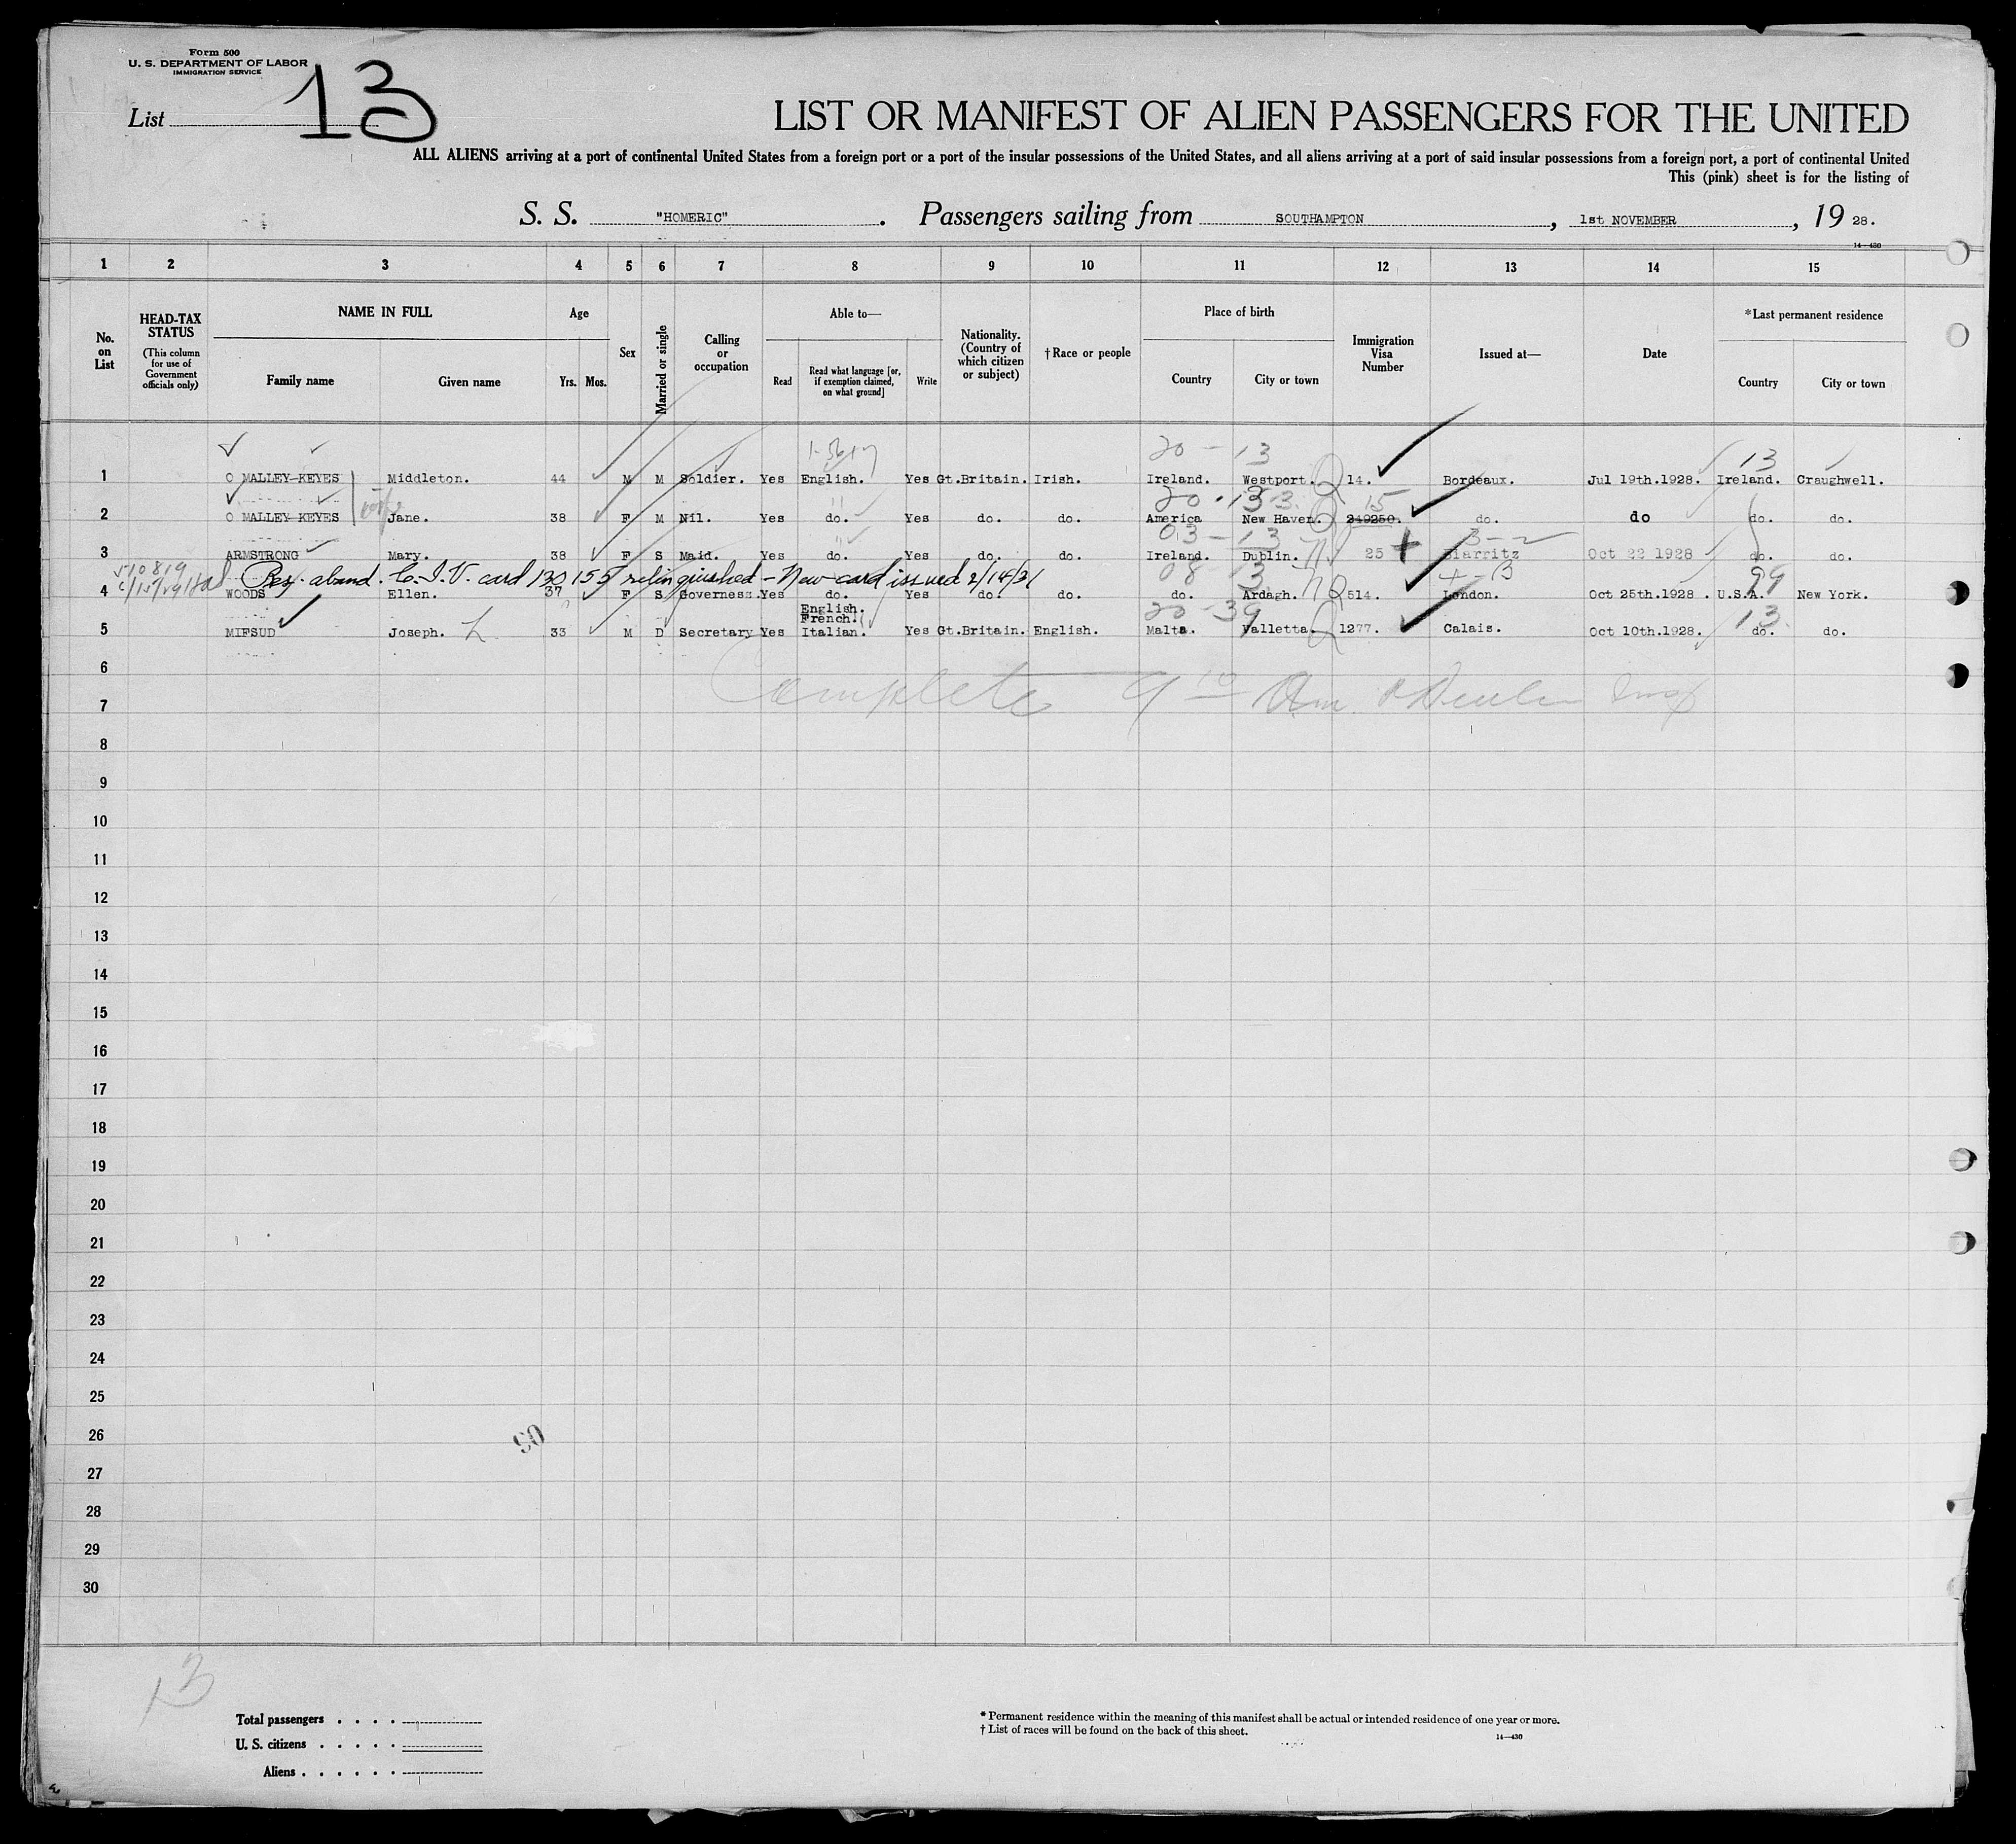 Form 500
U. S. DEPARTMENT OF LABOR
IMMIGRATION SERVICE
List 13
LIST OR MANIFEST OF ALIEN PASSENGERS FOR THE UNITED
ALL ALIENS arriving at a port of continental United States from a foreign port or a port of the insular possessions of the United States, and all aliens arriving at a port of said insular possessions from a foreign port, a port of continental United
This (pink) sheet is for the listing of
S. S. "HOMERIC". Passengers sailing from SOUTHAMPTON, 1st NOVEMBER, 19 28.
14—430
1 2 3 4 5 6 7 8 9 10 11 12 13 14 15
No. on List
HEAD-TAX STATUS (This column for use of Government officials only)
NAME IN FULL
Family name Given name
Age
Yrs. Mos.
Sex
Married or single
Calling or occupation
Able to—
Read Read what language [or, if exemption claimed, on what ground] Write
Nationality. (Country of which citizen or subject)
†Race or people
Place of birth
Country City or town
Immigration Visa Number
Issued at—
Date
*Last permanent residence
Country City or town
20 - 13 13
1 O MALLEY-KEYES Middleton. 44 M M Soldier. Yes English. Yes Gt.Britain. Irish. Ireland. Westport. 14. Bordeaux. Jul 19th.1928. Ireland. Craughwell.
15
2 O MALLEY KEYES wife Jane. 38 F M Nil. Yes do. Yes do. do. America New Haven. 249250. do. do do. do.
03 - 13 3-2
3 ARMSTRONG Mary. 38 F S Maid. Yes do. Yes do. do. Ireland. Dublin. 25 Biarritz Oct 22 1928 do. do.
Res. aband. C.I.V. card 130155 relinquished - New card issued 2/14/31
08 - 13 99
4 WOODS Ellen. 37 F S Governess. Yes do. Yes do. do. do. Ardagh. 514. London. Oct 25th.1928. U.S.A. New York.
English.
French.
20 - 39 13
5 MIFSUD Joseph. 33 M D Secretary Yes Italian. Yes Gt.Britain. English. Malta. Valletta. 1277. Calais. Oct 10th.1928. do. do.
6
Complete
7
8
9
10
11
12
13
14
15
16
17
18
19
20
21
22
23
24
25
26
27
28
29
30
13
Total passengers . . . .
U. S. citizens . . . . .
Aliens . . . . . .
* Permanent residence within the meaning of this manifest shall be actual or intended residence of one year or more.
† List of races will be found on the back of this sheet.
14—430